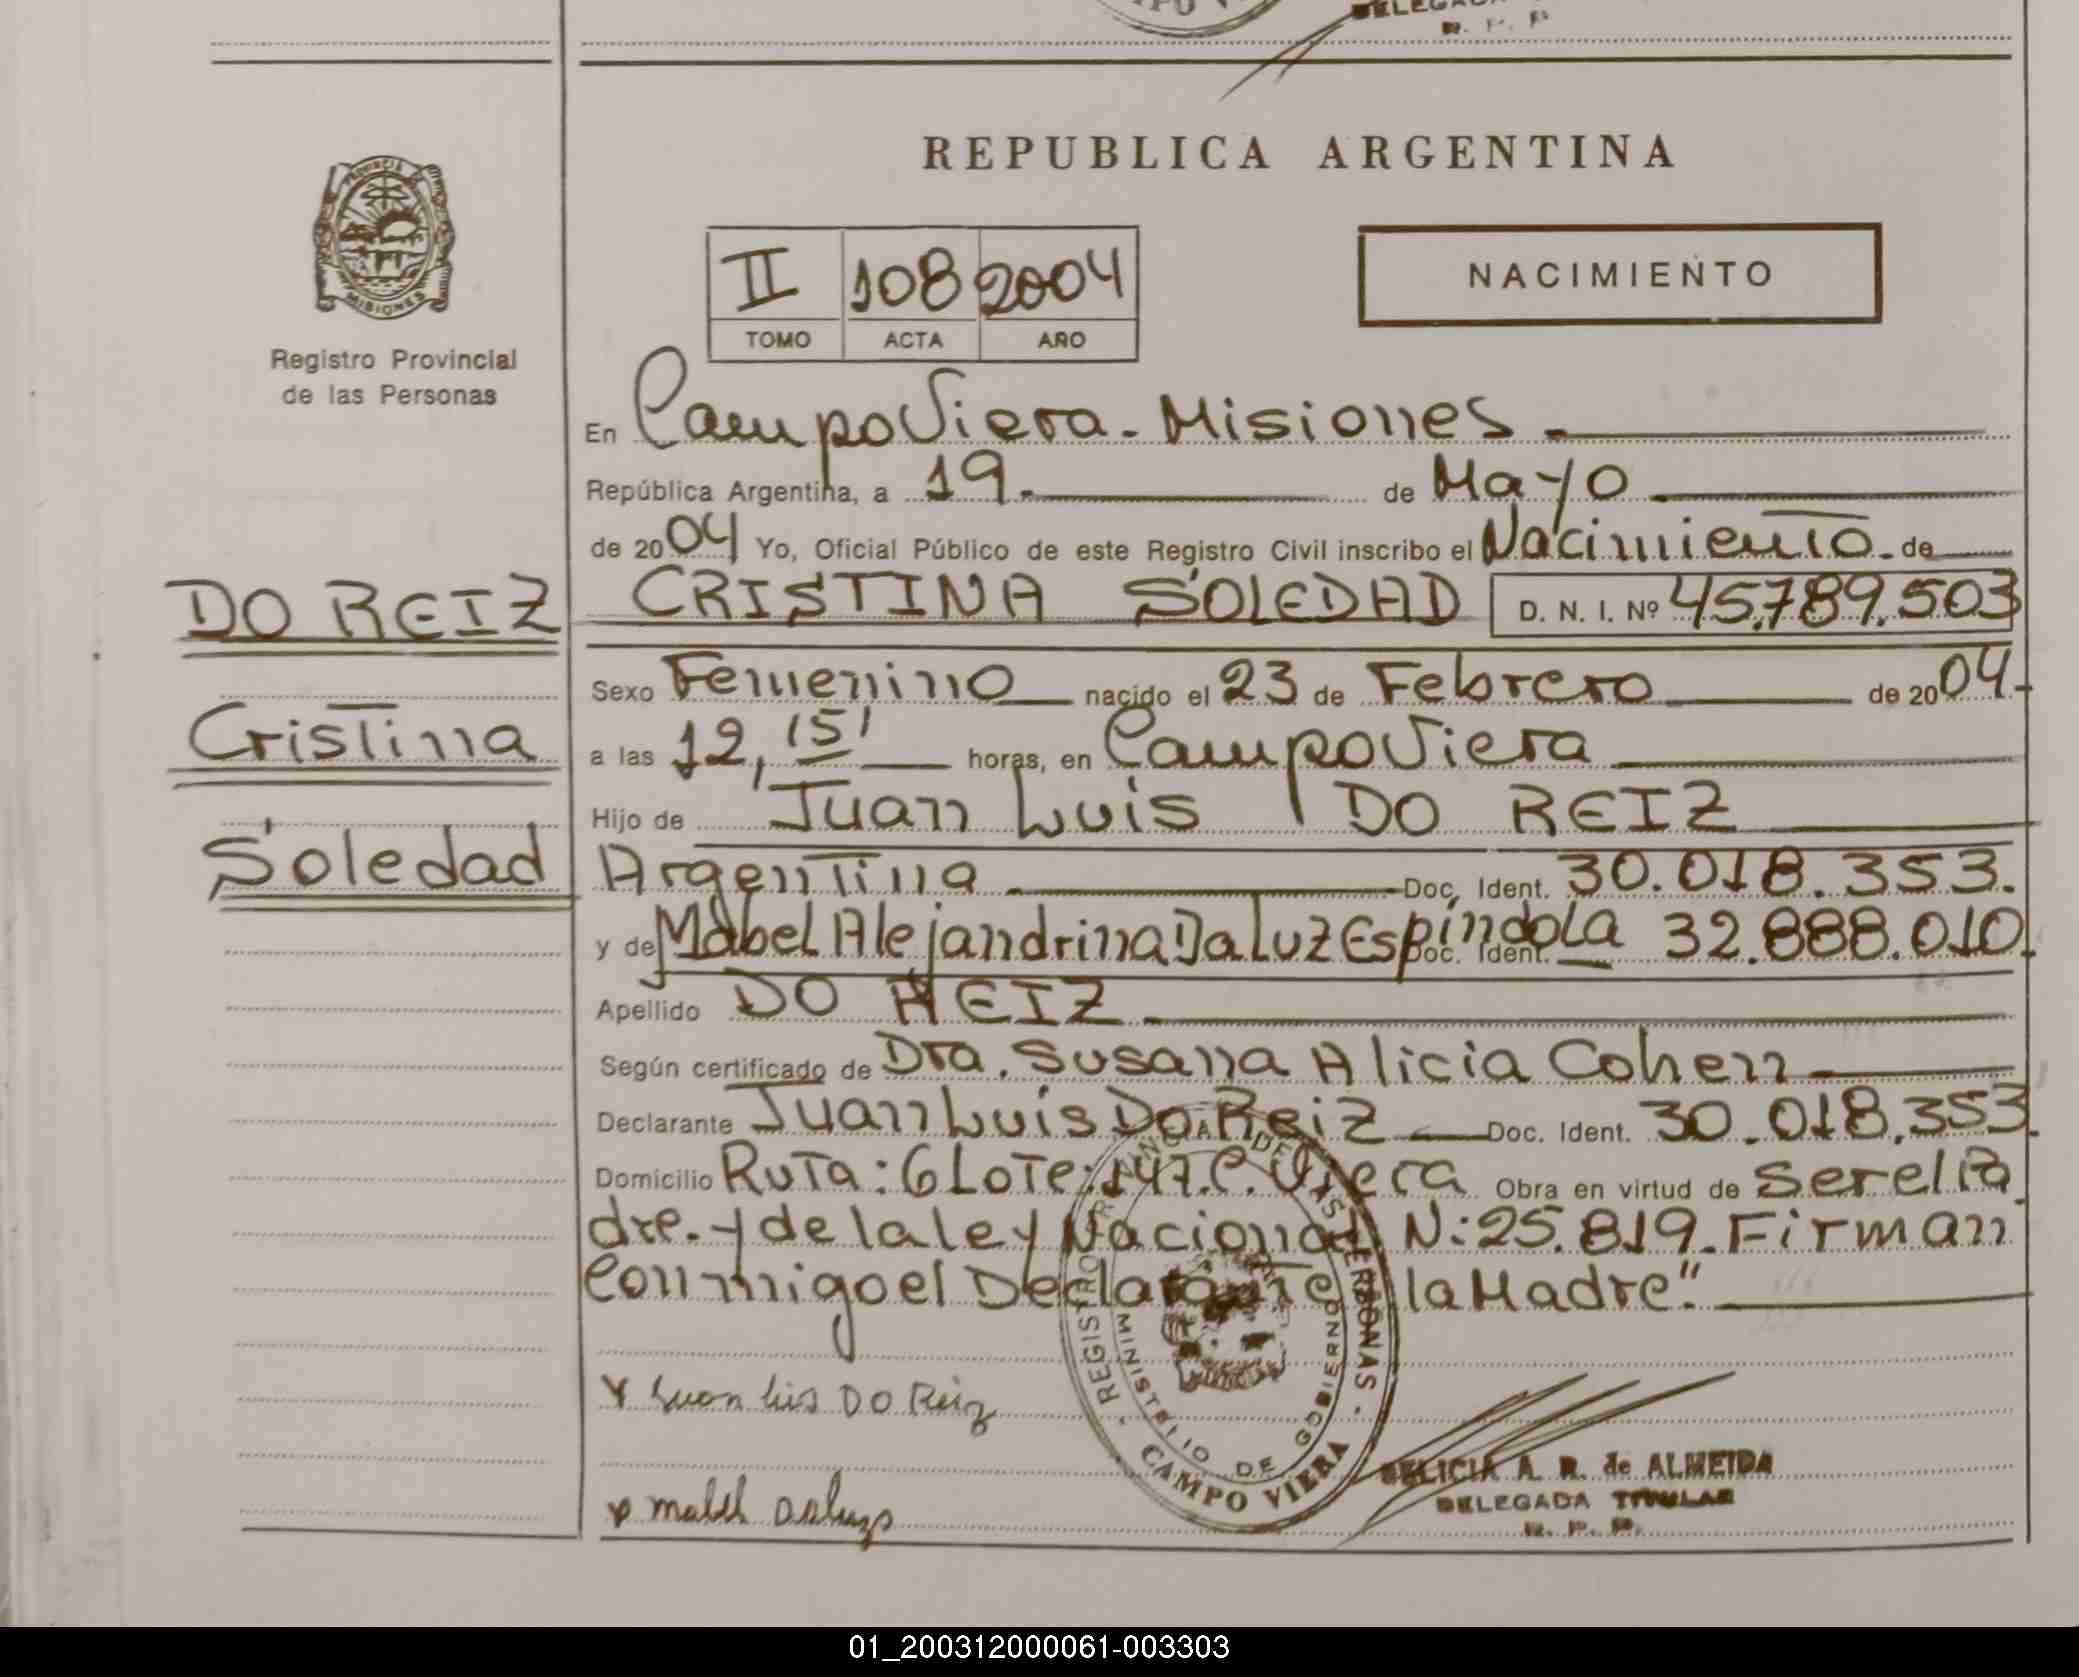 DELEGADA
R. P. P.
REPUBLICA ARGENTINA
PROVINCIA DE
MISIONES
Registro Provincial
de las Personas
II 108 2004
TOMO ACTA AÑO
NACIMIENTO
En Campo Viera - Misiones.
República Argentina, a 19. de Mayo
de 2004 Yo, Oficial Público de este Registro Civil inscribo el Nacimiento. de
DO REIZ CRISTINA SOLEDAD D. N. I. Nº 45.789.503
Sexo Femenino nacido el 23 de Febrero de 2004.
Cristina
a las 12, 15' horas, en Campo Viera
Hijo de Juan Luis DO REIZ
Soledad
Argentina Doc. Ident. 30.018.353.
y de Mabel Alejandrina Da Luz Espíndola Doc. Ident. 32.888.010.
Apellido DO REIZ
Según certificado de Dra. Susana Alicia Cohen
Declarante Juan Luis Do Reiz Doc. Ident. 30.018.353.
Domicilio Ruta: 6 Lote: 147. C. Viera Obra en virtud de ser el Pa
dre. y de la ley Nacional N: 25.819. Firman
Conmigo el Declarante la Madre".
Juan Luis DO Reiz
REGISTRO PROVINCIAL DE LAS PERSONAS
MINISTERIO DE GOBIERNO
CAMPO VIERA
DELICIA A. R. de ALMEIDA
DELEGADA TITULAR
R. P. P.
01_200312000061-003303